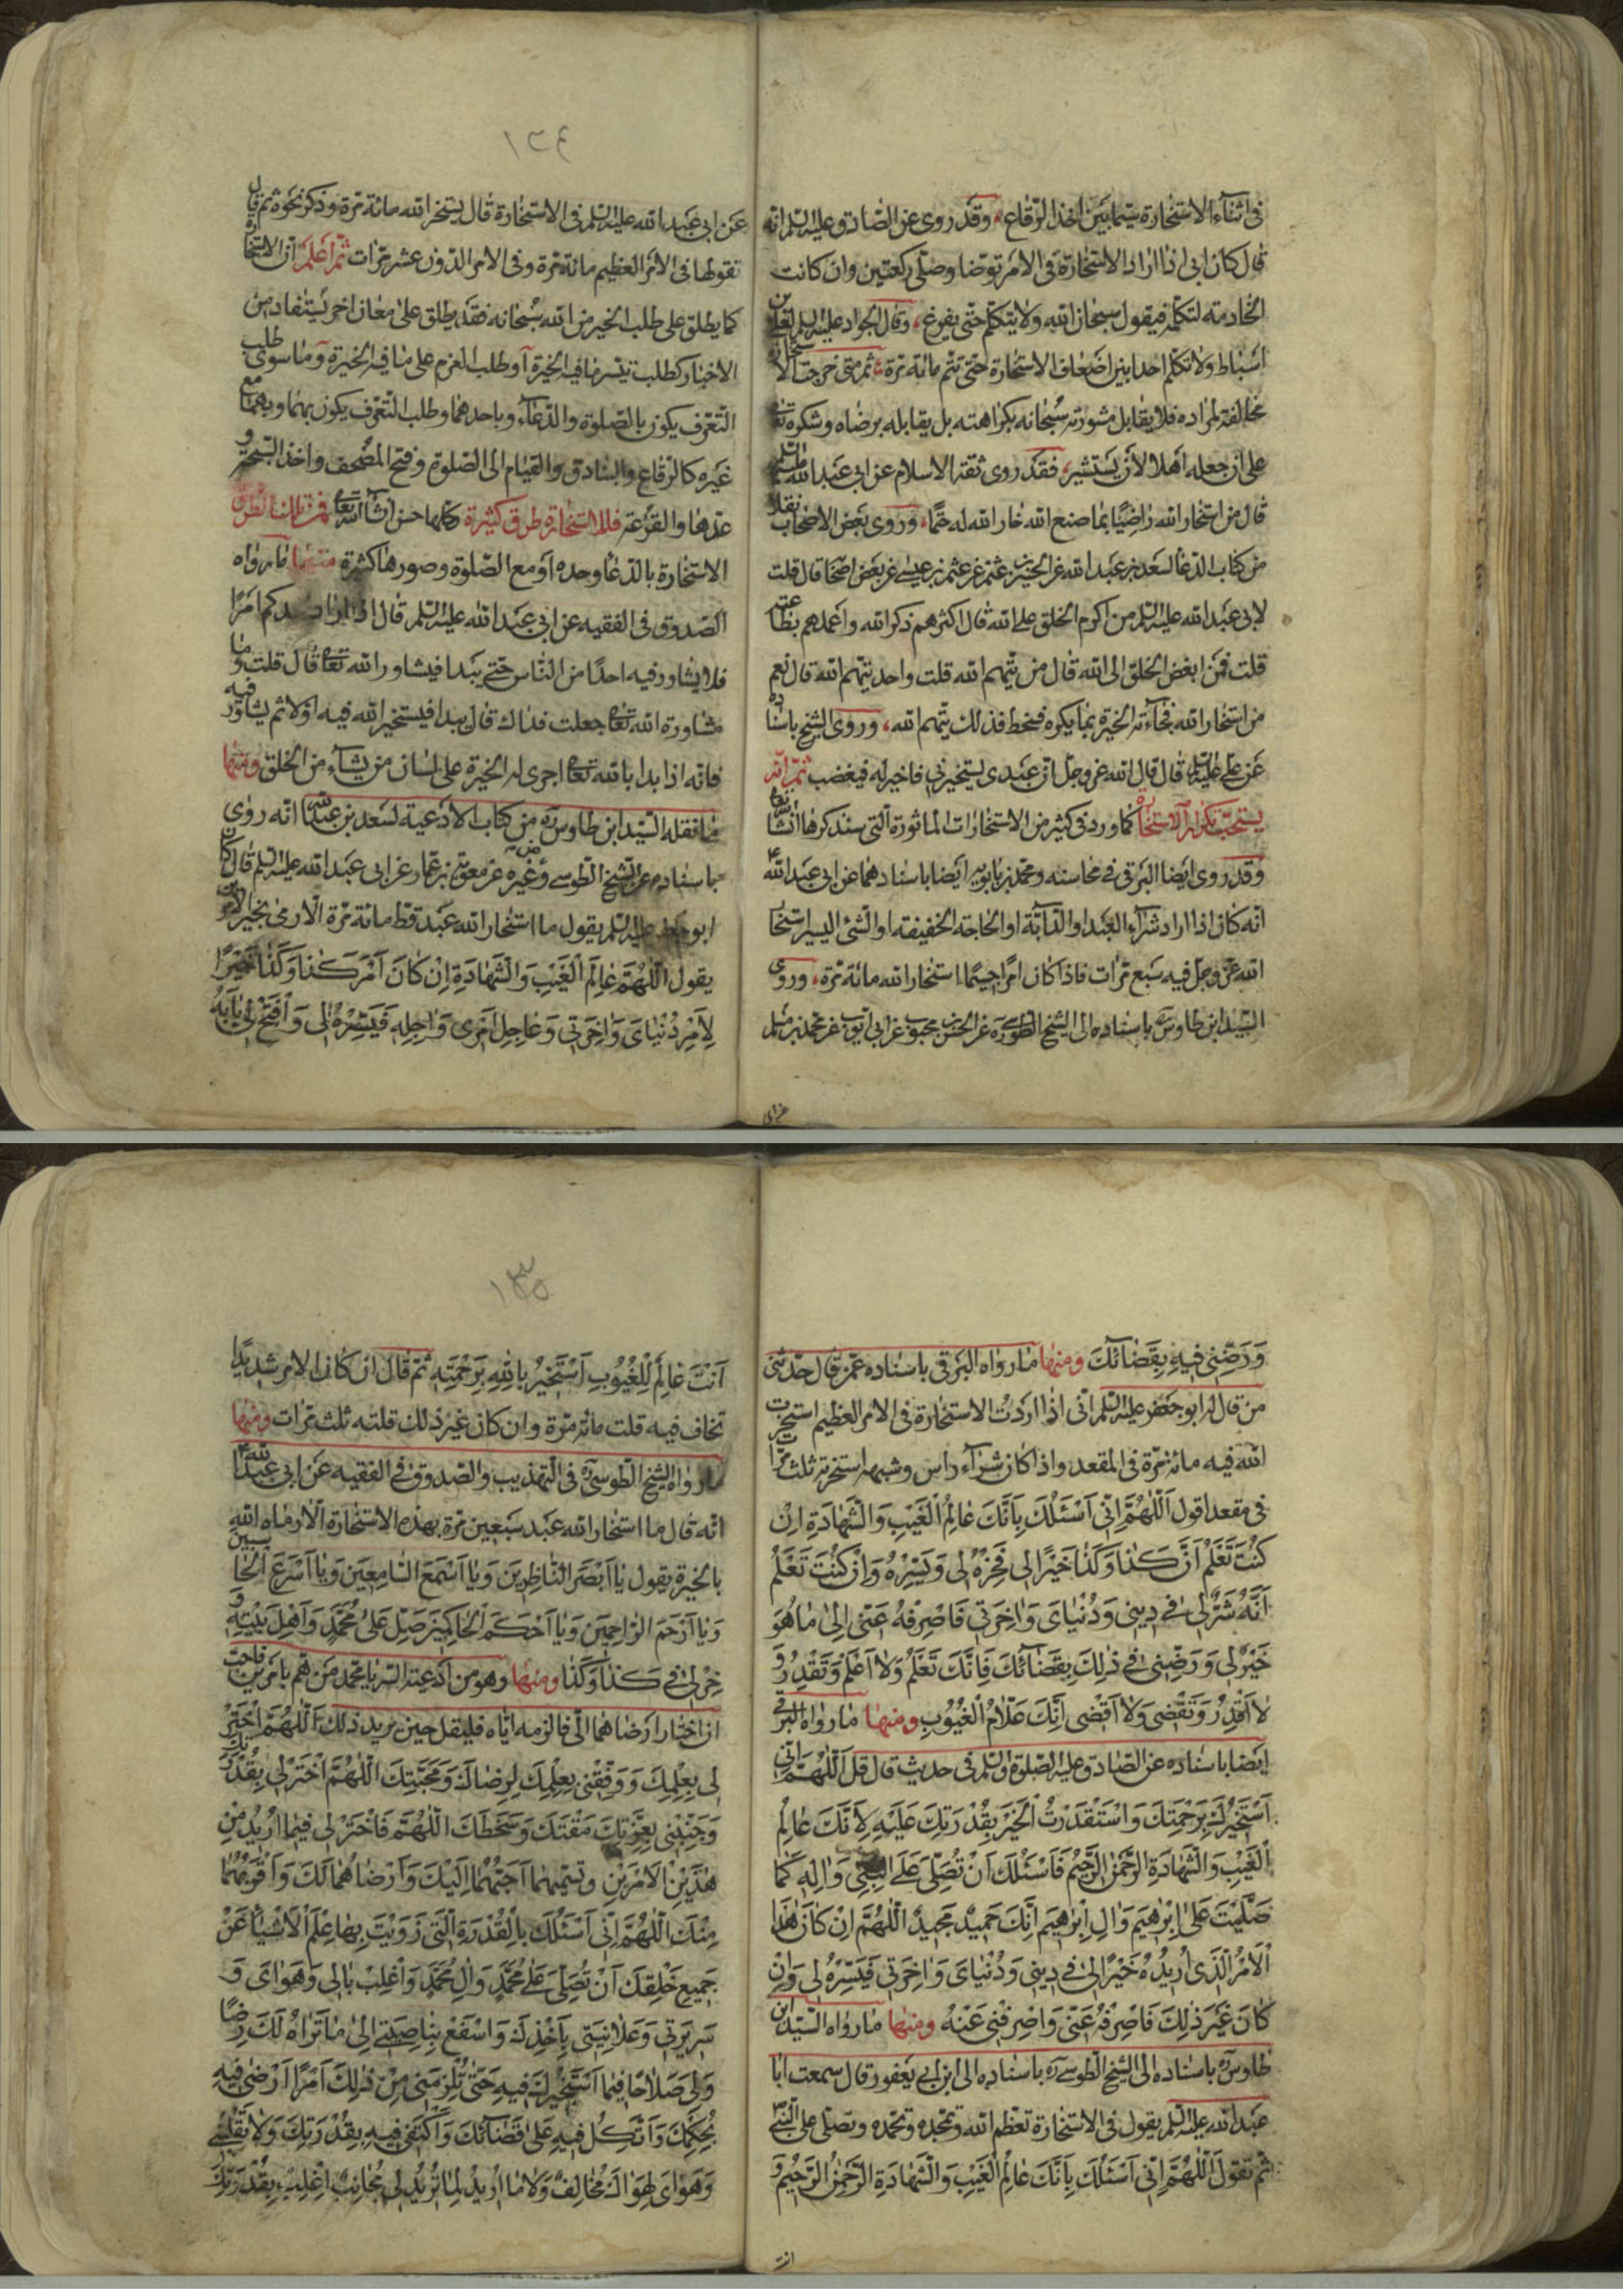 فى اثناء الاستخارة سيما بين اخذ الرقاع، وقد روى عن الصادق عليه السلم انه
قال كان ابى اذا اراد الاستخارة فى الامر توضا وصلى ركعتين وان كانت
الخادمة لتكلمه فيقول سبحان الله ولا يتكلم حتى يفرغ، وقال الجواد عليه السلم لعلى بن
اسباط ولا تكلم احدا بين اضعاف الاستخارة حتى تتم مائة مرة، ثم متى خرجت الاستخارة
مخالفة لمراده فلا يقابل مشورته سبحانه بكراهته بل يقابله برضاه وشكره تعا
على ان جعله اهلا لان يستشير، فقد روى ثقة الاسلام عن ابى عبد الله
قال من استخار الله راضيا بما صنع الله خار الله له حتما، وروى بعض الاصحاب نقلا
من كتاب الدعا لسعد بن عبد الله عن الحسين بن عثمن عن عثمن بن عيسى عن بعض اصحا قال قلت
لابى عبد الله عليه السلم من اكرم الخلق على الله قال اكثرهم ذكر الله واعملهم بطاعته
قلت فمن ابغض الخلق الى الله قال من يتهم الله قلت واحد يتهم الله قال نعم
من استخار الله فجاءته الخيرة بما يكره فسخط فذلك يتهم الله، وروى الشيخ باسناده
عن على عليه السلم قال قال الله عز وجل ان عبدى يستخيرنى فاخير له فيغضب ثم انه
يستحب تكرار الاستخارة كما ورد فى كثير من الاستخارات الماثورة التى سنذكرها انشا الله تعا
وقد روى ايضا البرقى فى محاسنه ومحمد بن بابويه ايضا باسنادهما عن ابى عبد الله
انه كان اذا اراد شراء العبد او الدابة او الحاجة الخفيفة او الشئ اليسير استخار
الله عز وجل فيه سبع مرات فاذا كان امرا جسيما استخار الله مائة مرة، وروى
السيد ابن طاوس ره باسناده الى الشيخ الطوسى ره عن الحسن بن محبوب عن ابى ايوب عن محمد بن مسلم
عن ابى
١٣٤
عن ابى عبد الله عليه السلم فى الاستخارة قال يستخير الله مائة مرة وذكر نحوه ثم قال
تقولها فى الامر العظيم مائة مرة وفى الامر الدون عشر مرات ثم اعلم ان الاستخارة
كما يطلق على طلب الخير من الله سبحانه فقد يطلق على معان اخر يستفاد من
الاخبار كطلب تيسر ما فيه الخيرة او طلب العزم على ما فيه الخيرة وما سوى طلب
التعرف يكون بالصلوة والدعاء وباحدهما وطلب التعرف يكون بهما وبهما مع
غيره كالرقاع والبنادق والقيام الى الصلوة وفتح المصحف واخذ السبحة و
عدها والقرعة فللاستخارة طرق كثيرة وكلها حسن انشا الله تعا فمن تلك الطرق
الاستخارة بالدعا وحده او مع الصلوة وصورها كثيرة منها ما رواه
الصدوق فى الفقيه عن ابى عبد الله عليه السلم قال اذا اراد احدكم امرا
فلا يشاور فيه احدا من الناس حتى يبدا فيشاور الله تعا قال قلت وما
مشاورة الله تعا جعلت فداك قال يبدا فيستخير الله فيه اولا ثم يشاور فيه
فانه اذا بدا بالله تعا اجرى له الخيرة على لسان من يشاء من الخلق ومنها
ما نقله السيد ابن طاوس ره من كتاب الادعية لسعد بن عبد الله انه روى
باسناده عن الشيخ الطوسى وغيره عن معوية بن عمار عن ابى عبد الله عليه السلم قال كان
ابو جعفر عليه السلم يقول ما استخار الله عبد قط مائة مرة الا رمى بخير الامرين
يقول اللهم عالم الغيب والشهادة ان كان امر كذا وكذا خيرا
لامر دنياى واخرتى وعاجل امرى واجله فيسره لى وافتح لى بابه
ورضنى فيه بقضائك ومنها ما رواه البرقى باسناده عمن قال حدثنى
من قال له ابو جعفر عليه السلم انى اذا اردت الاستخارة فى الامر العظيم استخرت
الله فيه مائة مرة فى المقعد واذا كان شراء راس وشبهه استخرته ثلث مرات
فى مقعد اقول اللهم انى اسئلك بانك عالم الغيب والشهادة ان
كنت تعلم ان كذا وكذا خيرا لى فخره لى ويسره وان كنت تعلم
انه شر لى فى دينى ودنياى واخرتى فاصرفه عنى الى ما هو
خير لى ورضنى فى ذلك بقضائك فانك تعلم ولا اعلم وتقدر و
لا اقدر وتقضى ولا اقضى انك علام الغيوب ومنها ما رواه البرقى
ايضا باسناده عن الصادق عليه الصلوة والسلم فى حديث قال قل اللهم انى
استخيرك برحمتك واستقدرت الخير بقدرتك عليه لانك عالم
الغيب والشهادة الرحمن الرحيم فاسئلك ان تصلى على النبى واله كما
صليت على ابرهيم وال ابرهيم انك حميد مجيد اللهم ان كان هذا
الامر الذى اريده خيرا لى فى دينى ودنياى واخرتى فيسره لى وان
كان غير ذلك فاصرفه عنى واصرفنى عنه ومنها ما رواه السيد ابن
طاوس ره باسناده الى الشيخ الطوسى ره باسناده الى ابن ابى يعفور قال سمعت ابا
عبد الله عليه السلم يقول فى الاستخارة تعظم الله وتمجده وتحمده وتصلى على النبى
ثم تقول اللهم انى اسئلك بانك عالم الغيب والشهادة الرحمن الرحيم و
انت
١٣٥
انت عالم للغيوب استخير بالله برحمته ثم قال ان كان الامر شديدا
تخاف فيه قلت مائة مرة وان كان غير ذلك قلته ثلث مرات ومنها
ما رواه الشيخ الطوسى ره فى التهذيب والصدوق فى الفقيه عن ابى عبد الله
انه قال ما استخار الله عبد سبعين مرة بهذه الاستخارة الا رماه الله
بالخيرة يقول يا ابصر الناظرين ويا اسمع السامعين ويا اسرع الحاسبين
ويا ارحم الراحمين ويا احكم الحاكمين صل على محمد واهل بيته و
خر لى فى كذا وكذا ومنها وهو من ادعية السر يا محمد من هم بامرين فاحب
ان اختار ارضاهما الى فالزمه اياه فليقل حين يريد ذلك اللهم اختر
لى بعلمك ووفقنى بعلمك لرضاك ومحبتك اللهم اختر لى بقدرتك
وجنبنى بعزتك مقتك وسخطك اللهم فاختر لى فيما اريد من
هذين الامرين وتسميهما احبهما اليك وارضاهما لك واقربهما
منك اللهم انى اسئلك بالقدرة التى زويت بها علم الاشياء عن
جميع خلقك ان تصلى على محمد وال محمد واغلب بالى وهواى و
سريرتى وعلانيتى باخذك واسفع بناصيتى الى ما تراه لك رضا
ولى صلاحا فيما استخيرك فيه حتى تلزمنى من ذلك امرا ارضى فيه
بحكمك واتكل فيه على قضائك واكتفى فيه بقدرتك ولا تقلبنى
وهواى لهواك مخالف ولا ما اريد لما تريد لى مجانب اغلب بقدرتك